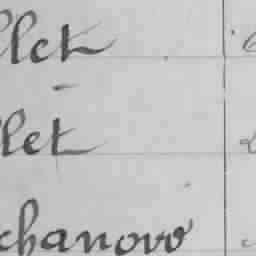 llet
llet
chanovo